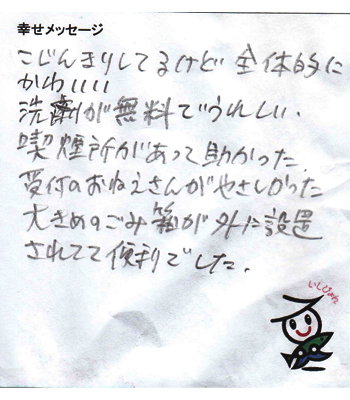 幸せメッセージ
こじんまりしてるけど全体的に
かわいいい
洗剤が無料でうれしい.
喫煙所があって助かった.
受付のおねえさんがやさしかった
大きめのごみ箱が外に設置
されてて便利でした.